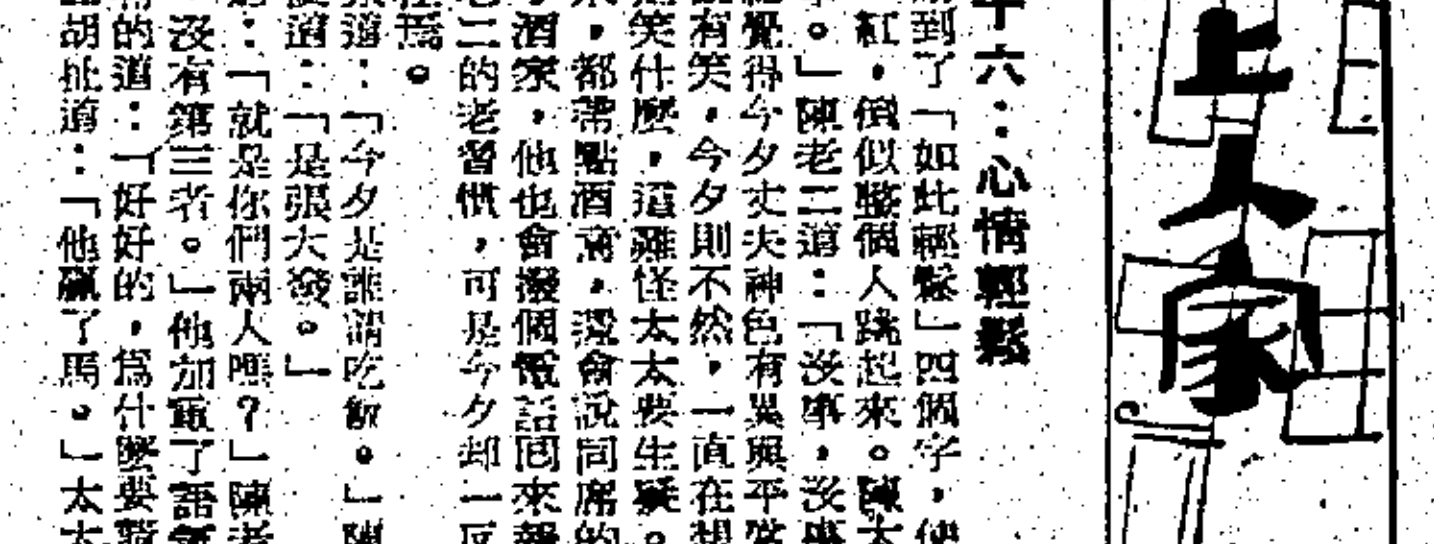 上人家
十六：心情輕鬆
到了「如此輕鬆」四個字，使
紅，倒似整個人跳起來。陳太
。」陳老二道：「沒事，沒事
覺得今夕丈夫神色有異與平常
有笑，今夕則不然，一直在想
笑什麼，這難怪太太要生疑。
，都帶點酒意，還會說同席的
酒家，他也會撥個電話囘來報
二的老習慣，可是今夕却一反
爲。
道：「今夕是誰請吃飯。」陳
道：「是張大發。」
：「就是你們兩人嗎？」陳老
沒有第三者。」他加重了語氣
的道：「好好的，爲什麼要
胡扯道：「他贏了馬。」太太